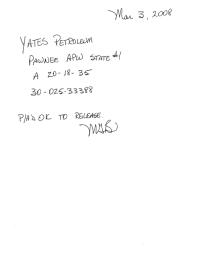 Mar 3, 2008
YATES PETROLEUM
PAWNEE APW STATE #1
A 20-18-35
30-025-33388
P/A'd OK TO RELEASE